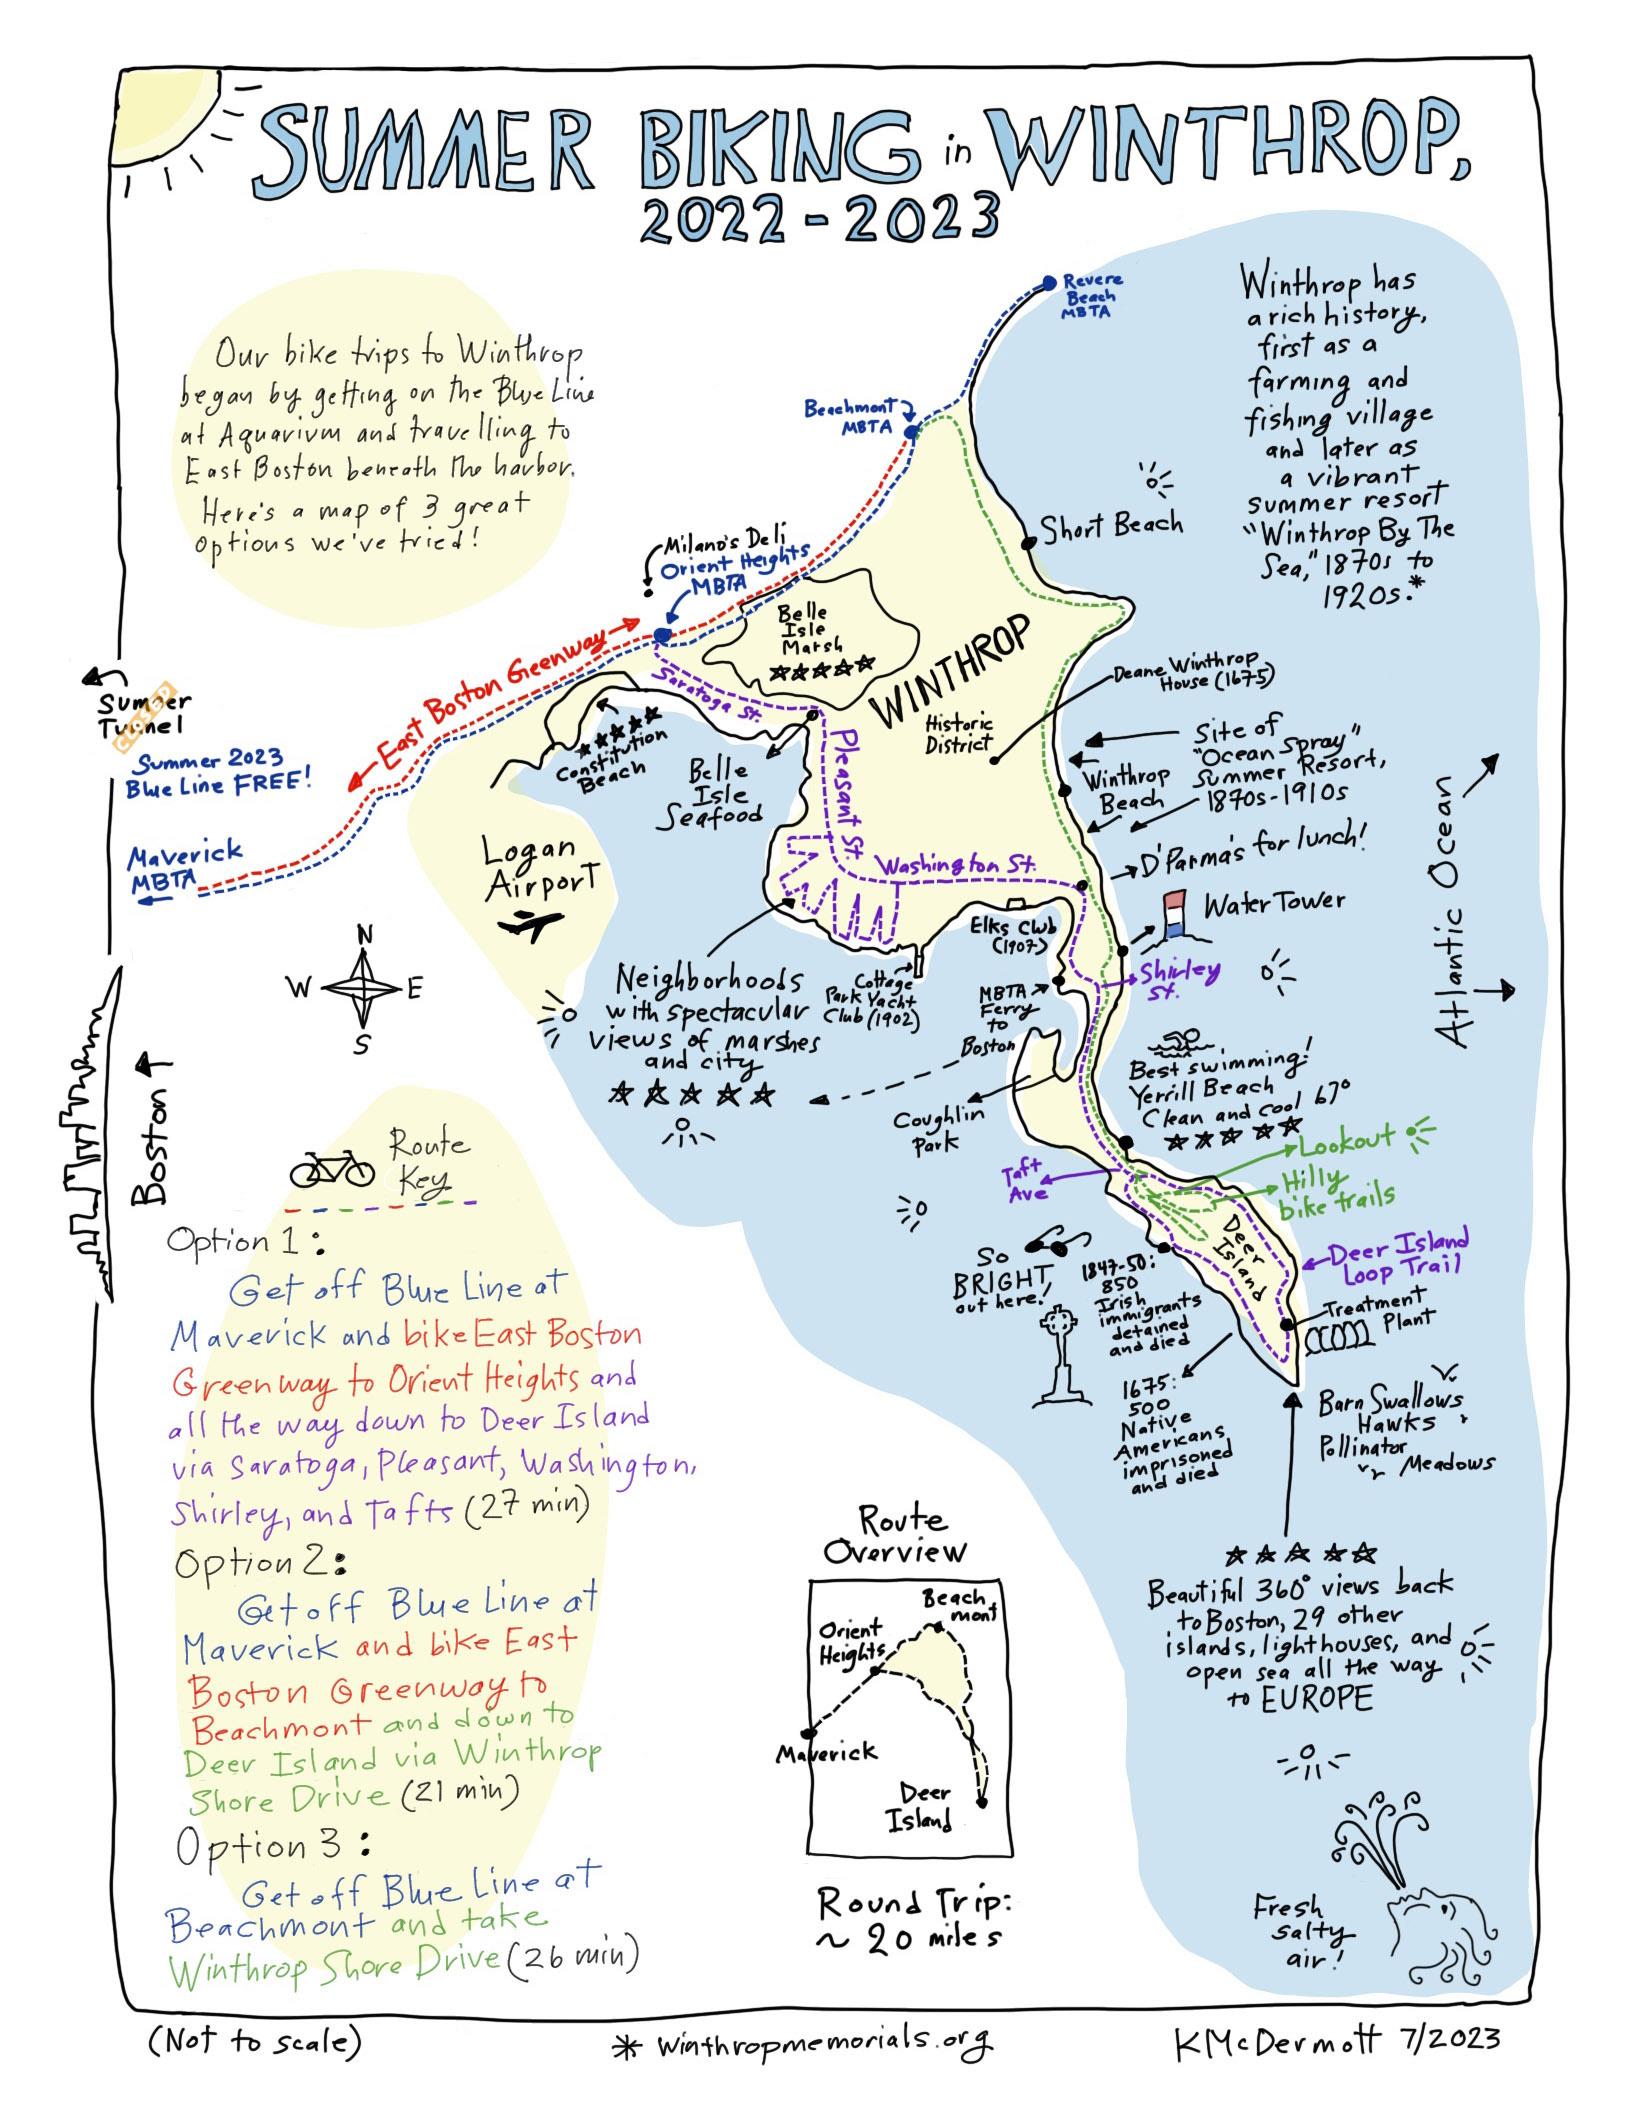 SUMMER BIKING in WINTHROP,
2022-2023
Our bike trips to Winthrop
began by getting on the Blue Line
at Aquarium and travelling to
East Boston beneath the harbor.
Here's a map of 3 great
options we've tried!
Winthrop has
a rich history,
first as a
farming and
fishing village
and later as
a vibrant
summer resort
"Winthrop By The
Sea," 1870s to
1920s.*
Revere
Beach
MBTA
Beachmont
MBTA
Short Beach
Milano's Deli
Orient Heights
MBTA
Belle
Isle
Marsh
WINTHROP
East Boston Geenway
Saratoga St.
Summer
Tunnel
CLOSED
Summer 2023
Blue Line FREE!
Maverick
MBTA
Constitution
Beach
Belle
Isle
Seafood
Pleasant St.
Historic
District
Deane Winthrop
House (1675)
Site of
"Ocean Spray"
Summer Resort,
1870s-1910s
Winthrop
Beach
Atlantic Ocean
Logan
Airport
Washington St.
D'Parma's for lunch!
Water Tower
Elks Club
(1907)
Cottage
Park Yacht
Club (1902)
Shirley
St.
MBTA
Ferry
to
Boston
Neighborhoods
with spectacular
views of marshes
and city
N
W E
S
Boston
Coughlin
Park
Best swimming!
Yerrill Beach
Clean and cool 67°
Lookout
Hilly
bike trails
Taft
Ave
Deer
Island
Deer Island
Loop Trail
Treatment
Plant
So
BRIGHT,
out here!
1847-50:
850
Irish
immigrants
detained
and died
1675:
500
Native
Americans
imprisoned
and died
Barn Swallows
Hawks
Pollinator
Meadows
Beautiful 360° views back
to Boston, 29 other
islands, lighthouses, and
open sea all the way
to EUROPE
Route
Key
Option 1:
Get off Blue Line at
Maverick and bike East Boston
Greenway to Orient Heights and
all the way down to Deer Island
via Saratoga, Pleasant, Washington,
Shirley, and Tafts (27 min)
Option 2:
Get off Blue Line at
Maverick and bike East
Boston Greenway to
Beachmont and down to
Deer Island via Winthrop
Shore Drive (21 min)
Option 3:
Get off Blue Line at
Beachmont and take
Winthrop Shore Drive (26 min)
Route
Overview
Beach
mont
Orient
Heights
Maverick
Deer
Island
Round Trip:
~ 20 miles
Fresh
salty
air!
(Not to scale)
* winthropmemorials.org
KMcDermott 7/2023